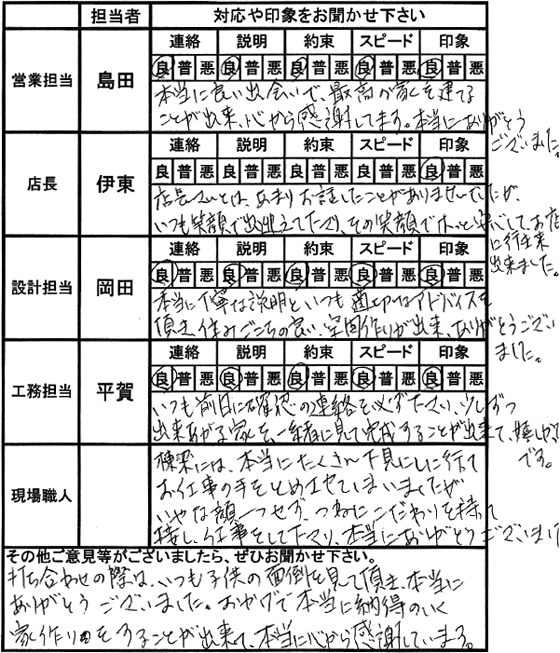 担当者 対応や印象をお聞かせ下さい
営業担当 島田
連絡 説明 約束 スピード 印象
良 普 悪 良 普 悪 良 普 悪 良 普 悪 良 普 悪
本当に良い出会いで、最高の家を建てる
ことが出来、心から感謝してます。本当にありがとう
ございました。
店長 伊東
連絡 説明 約束 スピード 印象
良 普 悪 良 普 悪 良 普 悪 良 普 悪 良 普 悪
店長さんとは、あまりお話したことがありませんでしたが、
いつも笑顔で出迎えて下さり、その笑顔でホッと安心して、お店
に行く事が出来ました。
設計担当 岡田
連絡 説明 約束 スピード 印象
良 普 悪 良 普 悪 良 普 悪 良 普 悪 良 普 悪
本当に丁寧な説明といつも適切なアドバイスを
頂き、住みごこちの良い空間作りが出来、ありがとうござい
ました。
工務担当 平賀
連絡 説明 約束 スピード 印象
良 普 悪 良 普 悪 良 普 悪 良 普 悪 良 普 悪
いつも前日に確認の連絡を必ず下さい、少しずつ
出来あがる家を、一緒に見て完成することが出来て、嬉しかった
です。
現場職人
棟梁には、本当にたくさん下見にしに行って
お仕事の手をとめさせていまいましたが
いやな顔一つせず、つねにこだわりを持って
接し、仕事をして下さり、本当にありがとうございます
その他ご意見等がございましたら、ぜひお聞かせ下さい。
打ち合わせの際は、いつも子供の面倒を見て頂き、本当に
ありがとうございました。おかげで本当に納得のいく
家作りをすることが出来て、本当に心から感謝しています。